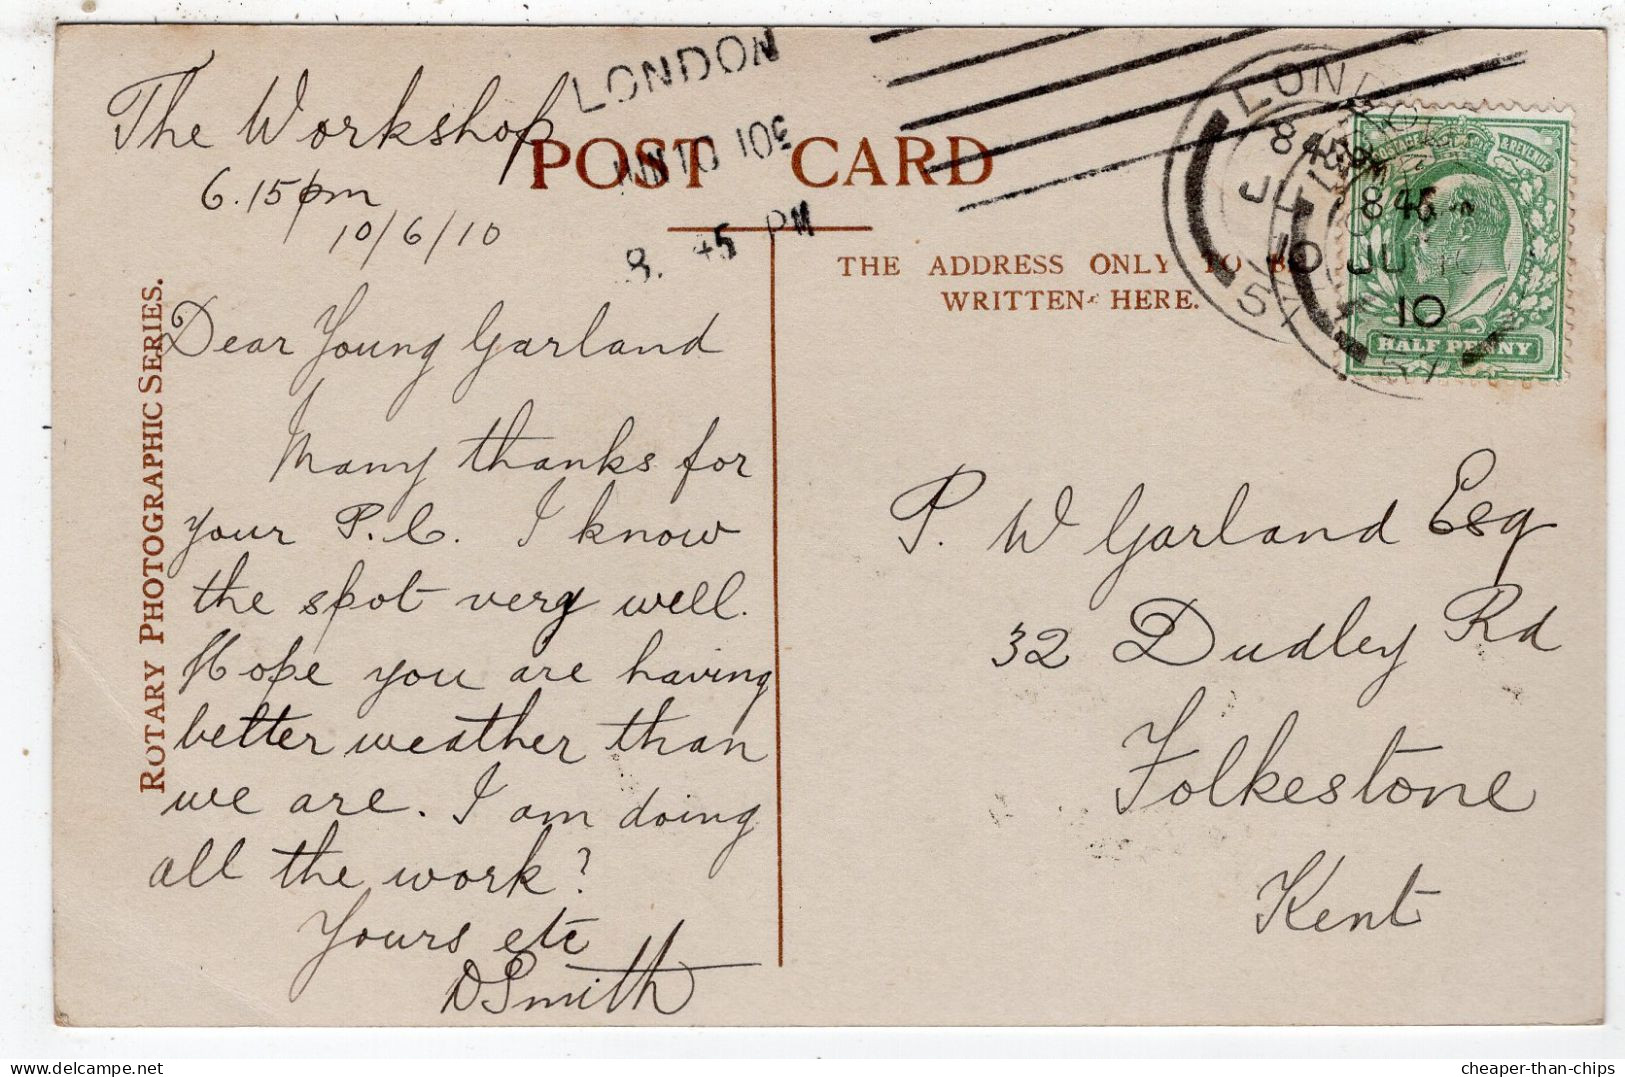 The Workshop
6.15pm
10/6/10
LONDON
JUN 10 10
8. 45 PM
POST CARD
THE ADDRESS ONLY TO BE
WRITTEN HERE.
ROTARY PHOTOGRAPHIC SERIES.
Dear Young Garland
Many thanks for
your P.C. I know
the spot very well.
Hope you are having
better weather than
we are. I am doing
all the work?
Yours etc
D Smith
LONDON
8 45
10 JU
10
POSTAGE & REVENUE
HALF PENNY
P. W Garland Esq
32 Dudley Rd
Folkestone
Kent
delcampe.net
cheaper-than-chips